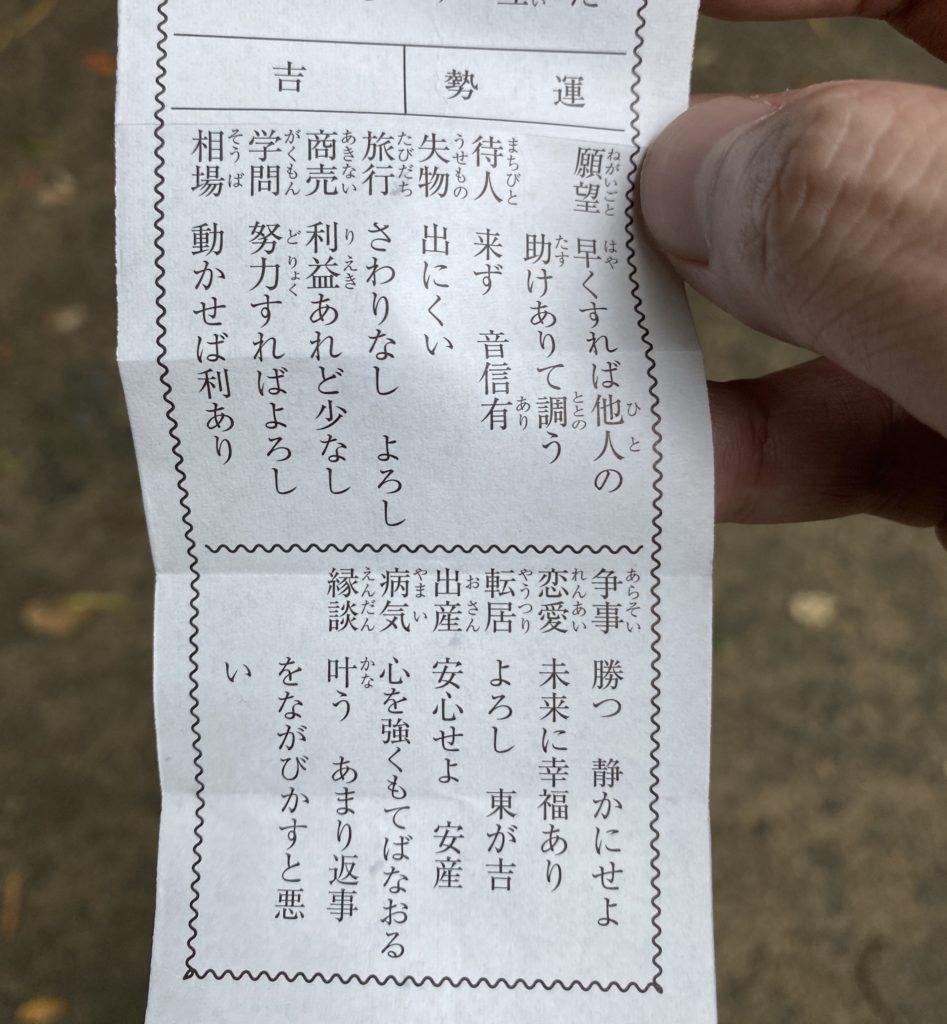 運勢 吉
願望 早くすれば他人の
助けありて調う
待人 来ず 音信有
失物 出にくい
旅行 さわりなし よろし
商売 利益あれど少なし
学問 努力すればよろし
相場 動かせば利あり
争事 勝つ 静かにせよ
恋愛 未来に幸福あり
転居 よろし 東が吉
出産 安心せよ 安産
病気 心を強くもてばなおる
縁談 叶う あまり返事
をながびかすと悪
い